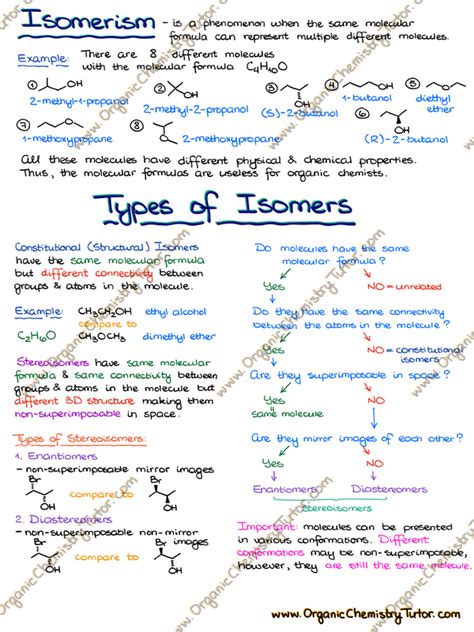 Isomerism - is a phenomenon when the same molecular
formula can represent multiple different molecules.
Example: There are 8 different molecules
with the molecular formula C4H10O
1 OH
2-methyl-1-propanol
2 OH
2-methyl-2-propanol
3 OH
(S)-2-butanol
4 OH
1-butanol
5 O
diethyl
ether
7 O
1-methoxypropane
8 O
2-methoxypropane
6 OH
(R)-2-butanol
All these molecules have different physical & chemical properties.
Thus, the molecular formulas are useless for organic chemists.
Types of Isomers
Constitutional (Structural) Isomers
have the same molecular formula
but different connectivity between
groups & atoms in the molecule.
Example: CH3CH2OH ethyl alcohol
compare to
C2H6O CH3OCH3 dimethyl ether
Stereoisomers have same molecular
formula & same connectivity between
groups & atoms in the molecule but
different 3D structure making them
non-superimposable in space.
Types of Stereoisomers:
1. Enantiomers
- non-superimposable mirror images
Br OH compare to Br OH
2. Diastereomers
- non-superimposable non-mirror images
Br OH compare to Br OH
Do molecules have the same
molecular formula?
Yes NO = unrelated
Do they have the same connectivity
between the atoms in the molecule?
Yes NO = constitutional
isomers
Are they superimposable in space?
Yes NO
same molecule
Are they mirror images of each other?
Yes NO
Enantiomers Diastereomers
stereoisomers
Important: molecules can be presented
in various conformations. Different
conformations may be non-superimposable,
however, they are still the same molecule.
www.OrganicChemistryTutor.com